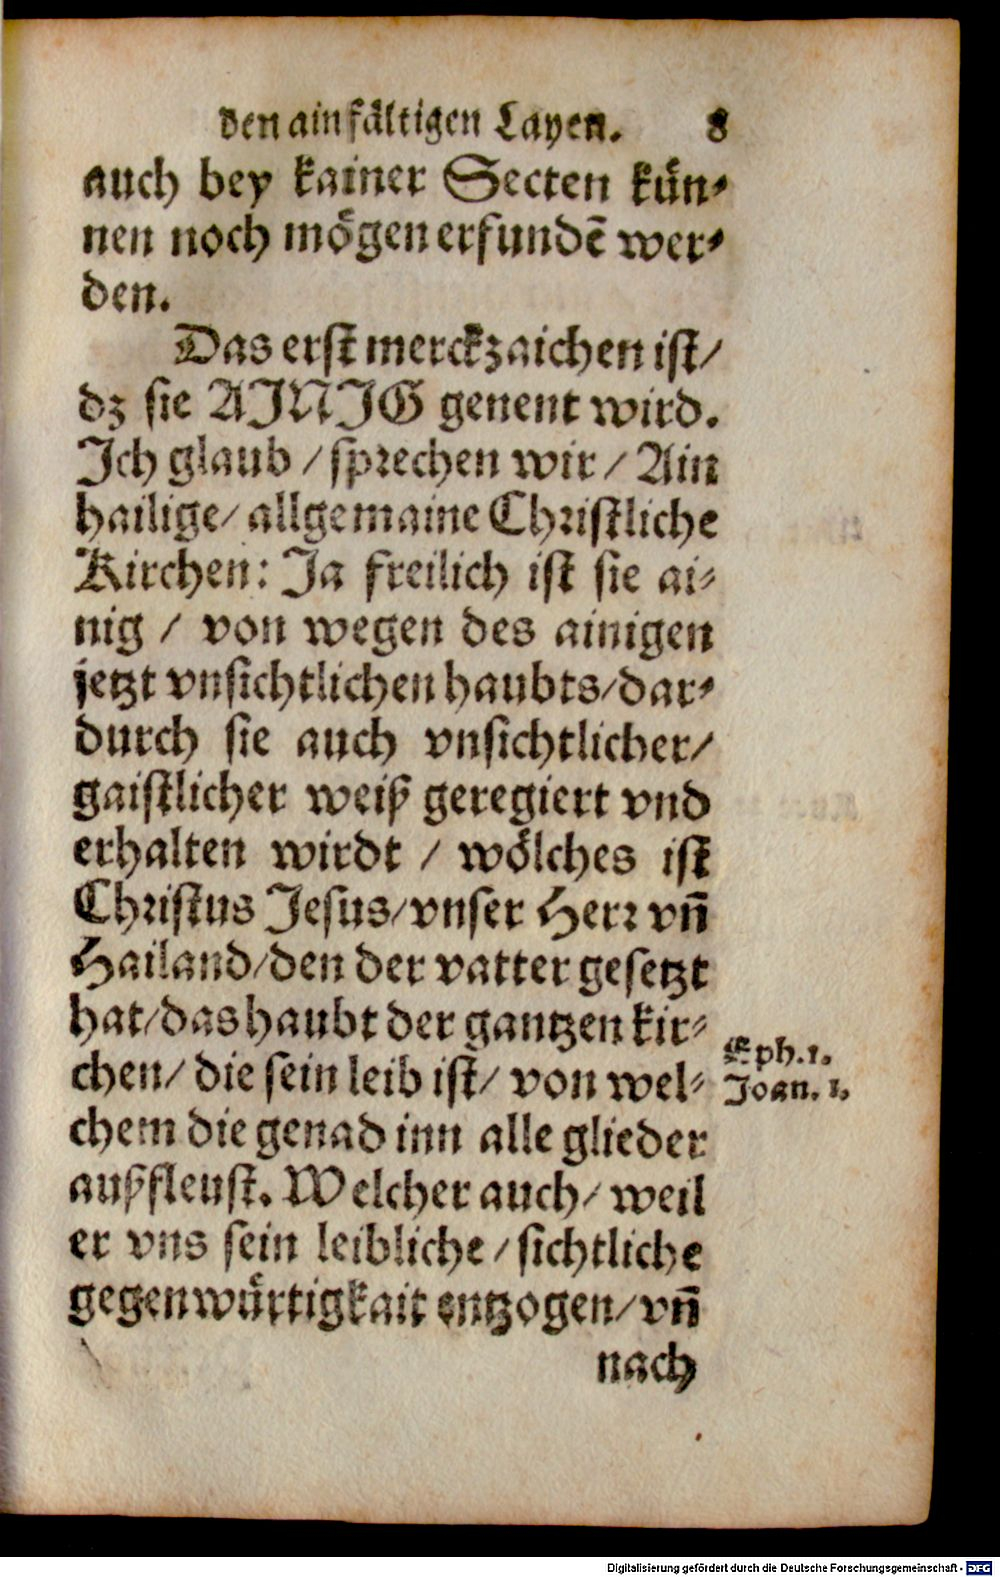 den ainfältigen Layen. 8
auch bey kainer Secten kün⸗
nen noch mögen erfundẽ wer⸗
den.
Das erst merckzaichen ist/
dz sie AJNJG genent wird.
Jch glaub / sprechen wir / Ain
hailige/ allgemaine Christliche
Kirchen: Ja freilich ist sie ai⸗
nig / von wegen des ainigen
jetzt vnsichtlichen haubts/dar⸗
durch sie auch vnsichtlicher/
gaistlicher weiß geregiert vnd
erhalten wirdt / wölches ist
Christus Jesus/vnser Herr vñ
Hailand/den der vatter gesetzt
hat/das haubt der gantzen kir⸗
Eph.1.
chen/ die sein leib ist/ von wel⸗
Joan. 1.
chem die genad inn alle glieder
außfleust. Welcher auch/ weil
er vns sein leibliche/sichtliche
gegenwürtigkait entzogen/vñ
nach
Digitalisierung gefördert durch die Deutsche Forschungsgemeinschaft - DFG